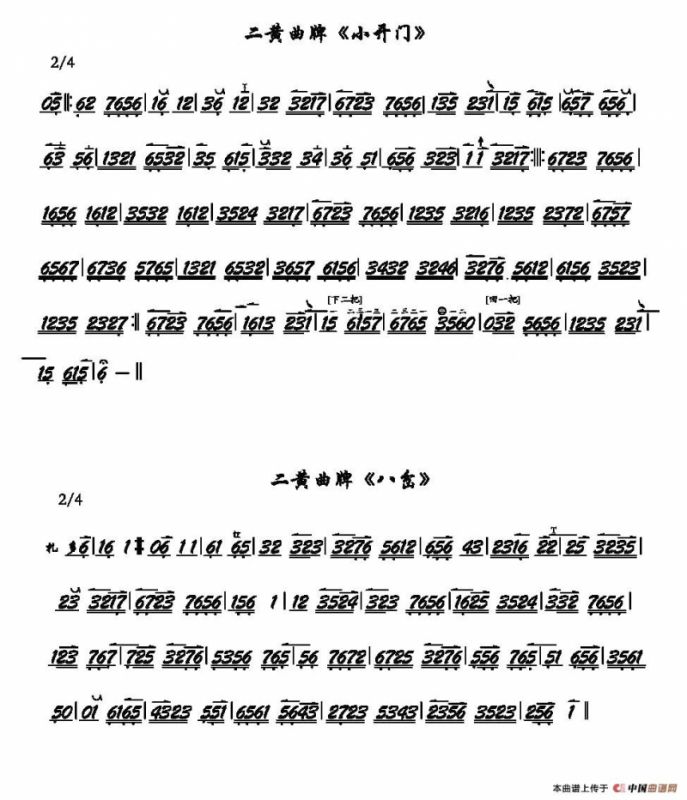 二黄曲牌《小开门》
2/4
05 ‖: 62 7656 | 16 12 | 36 12 | 32 3217 | 6723 7656 | 135 231 | 15 615 | 657 656 |
63 56 | 1321 6532 | 35 615 | 332 34 | 36 51 | 656 323 | 11 3217 :‖: 6723 7656 |
1656 1612 | 3532 1612 | 3524 3217 | 6723 7656 | 1235 3216 | 1235 2372 | 6757
6567 | 6736 5765 | 1321 6532 | 3657 6156 | 3432 3246 | 3276 5612 | 6156 3523 |
[下二把] [回一把]
1235 2327 :‖ 6723 7656 | 1613 231 | 15 6157 | 6765 3560 | 032 5656 | 1235 231 |
15 615 | 6 — ‖
二黄曲牌《八岔》
2/4
扎 多6 | 16 1 06 11 | 61 65 | 32 323 | 3276 5612 | 656 43 | 2316 22 | 25 3235 |
23 3217 | 6723 7656 | 156 1 | 12 3524 | 323 7656 | 1625 3524 | 332 7656 |
123 767 | 725 3276 | 5356 765 | 56 7672 | 6725 3276 | 556 765 | 51 656 | 3561
50 | 01 6165 | 4323 551 | 6561 5643 | 2723 5343 | 2356 3523 | 256 1 ‖
本曲谱上传于 中国曲谱网